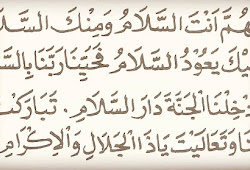 هُمَّ أَنْتَ السَّلَامُ وَمِنْكَ السَّلَا
كَ يَعُودُ السَّلَامُ فَحَيِّنَا رَبَّنَا بِالسَّ
دْخِلْنَا الْجَنَّةَ دَارَ السَّلَامِ . تَبَارَكْتَ
نَا وَتَعَالَيْتَ يَاذَا الْجَلَالِ وَالْإِكْرَامِ